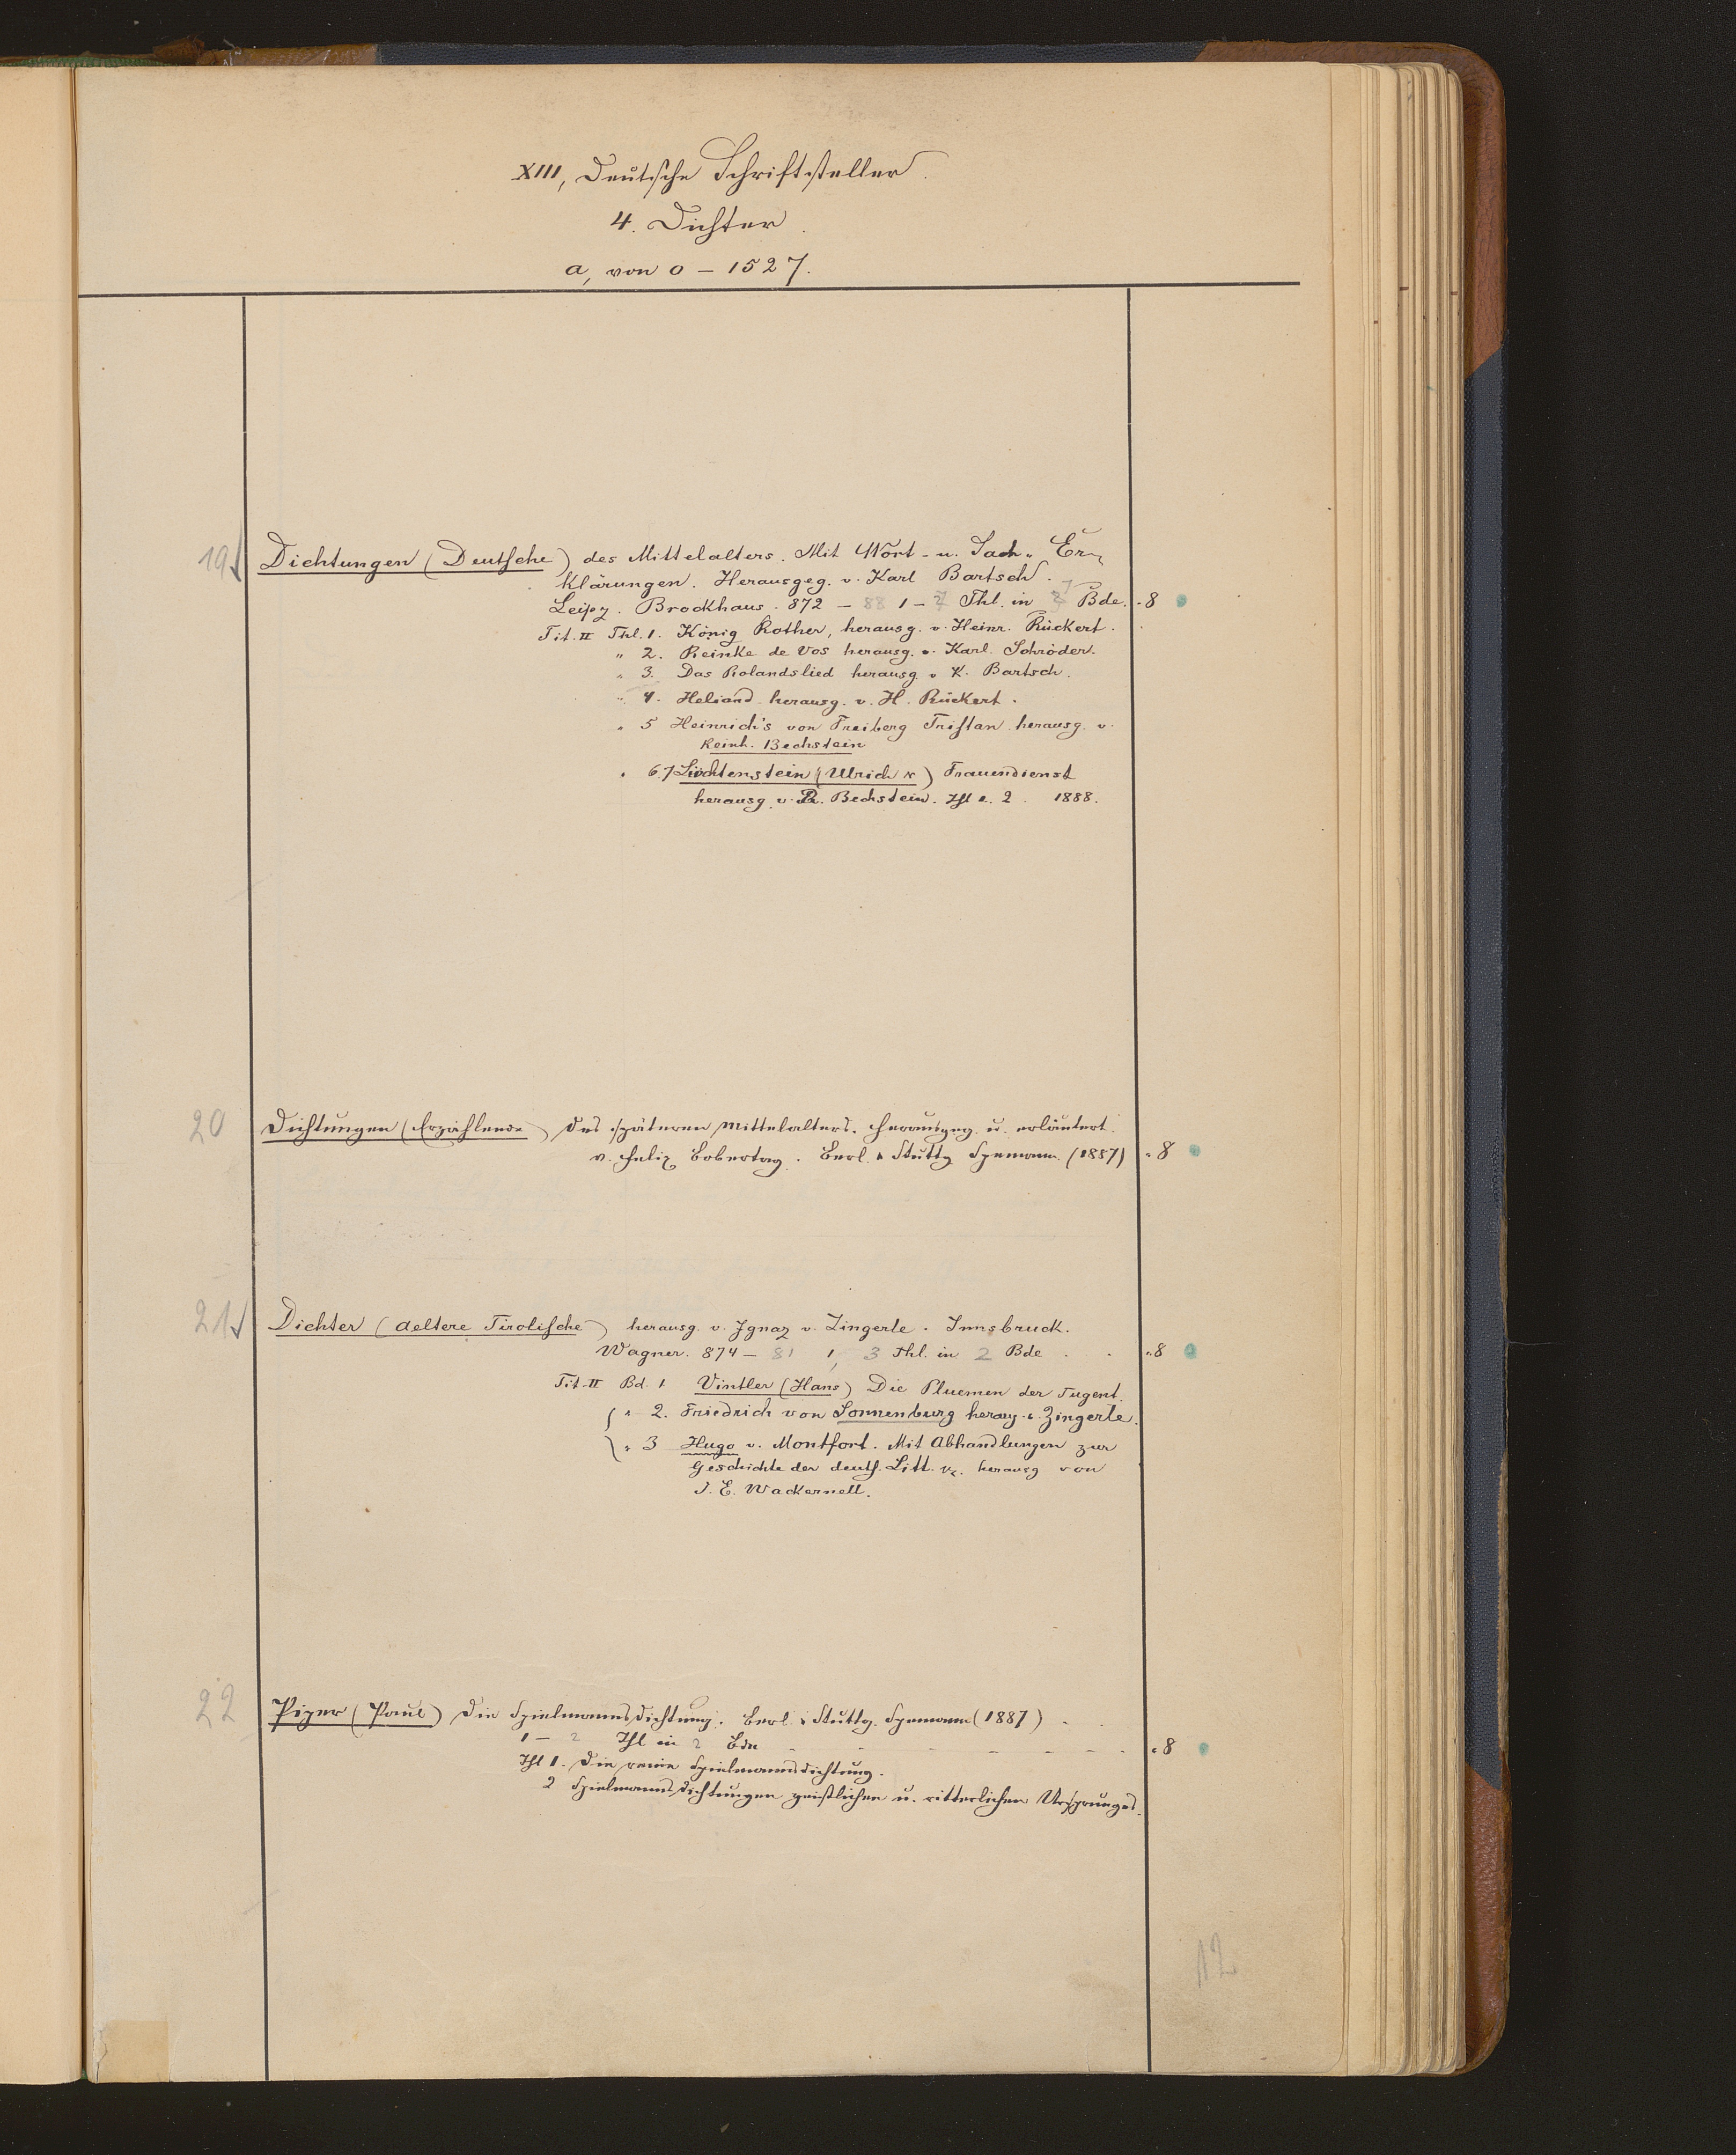 XIII, Deutsche Schriftsteller.
4. Dichter.
a, von 0 – 1527.
19 Dichtungen (Deutsche) des Mittelalters. Mit Wort- u. Sach- Er-
klärungen. Herausgeg. v. Karl Bartsch.
Leipz. Brockhaus. 872 – 88 1 – 7 Thl. in 7 Bde. 8
Tit. II Thl. 1. König Rother, herausg. v. Heinr. Rückert.
" 2. Reinke de Vos herausg. v. Karl Schröder.
" 3. Das Rolandslied herausg v K. Bartsch.
" 4. Heliand herausg. v. H. Rückert.
" 5 Heinrich's von Freiberg Tristan herausg. v.
Reinh. Bechstein
" 6.7 Liechtenstein (Ulrich v) Frauendienst
herausg. v. R. Bechstein. Thl 1. 2. 1888.
20 Dichtungen (Erzählende) des späteren Mittelalters. Herausgeg. u. erläutert
v. Felix Bobertag. Berl. & Stuttg Spemann. (1887) 8
21 Dichter (aeltere Tirolische) herausg. v. Ignaz v. Zingerle. Innsbruck.
Wagner. 874 – 81 1, 3 Thl. in 2 Bde . . 8
Tit. II Bd. 1 Vintler (Hans) Die Pluemen der Tugent.
" 2. Friedrich von Sonnenburg herausg. v. Zingerle.
" 3 Hugo v. Montfort. Mit Abhandlungen zur
Geschichte der deutsch. Litt. herausg von
J. E. Wackernell.
22 Piper (Paul) Die Spielmannsdichtung. Berl. & Stuttg. Spemann (1887)
1 – 2 Thl in 2 Bde 8
Thl 1. Die reine Spielmannsdichtung.
2 Spielmannsdichtungen geistlichen u. ritterlichen Ursprunges.
12